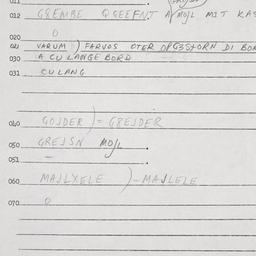 011
012 GREMBE GREEFNT A MOJL MIT KAS
020
021 VARUM ) FARVOS OTER OPGESHORN DI BOR
030 A CU LANGE BORD
031 CU LANG
040 GOJDER ) = GREJDER
050 GREJSN MOJL
051
060 MAJLXELE ) - MAJLELE
070